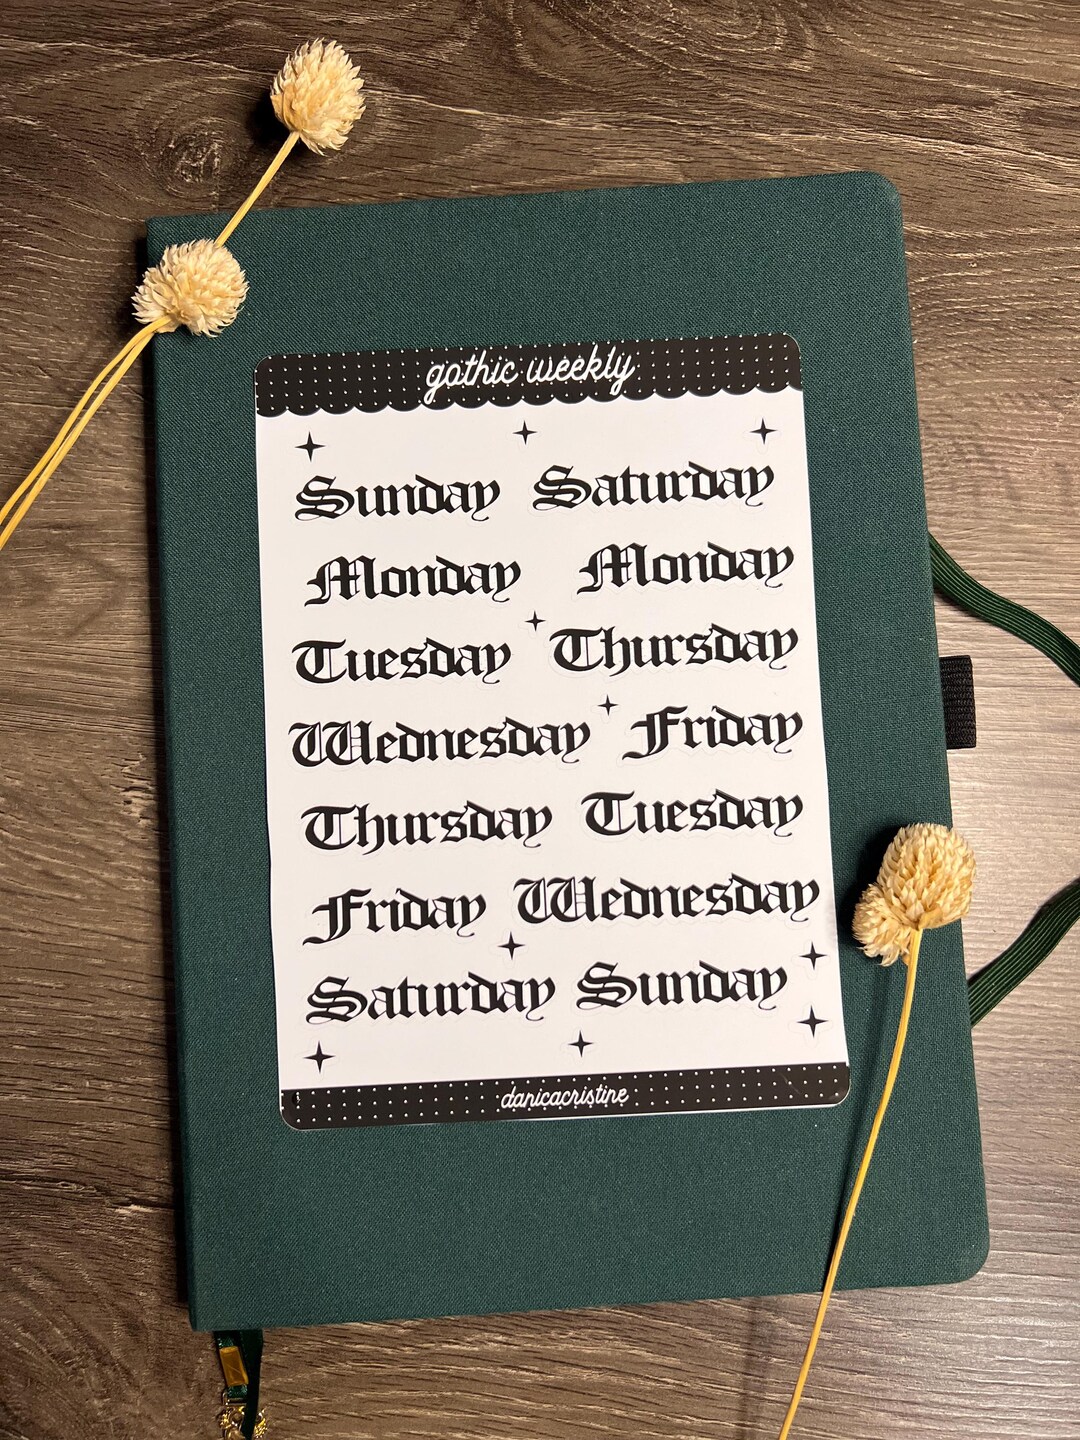 gothic weekly
Sunday Saturday
Monday Monday
Tuesday Thursday
Wednesday Friday
Thursday Tuesday
Friday Wednesday
Saturday Sunday
danicacristine